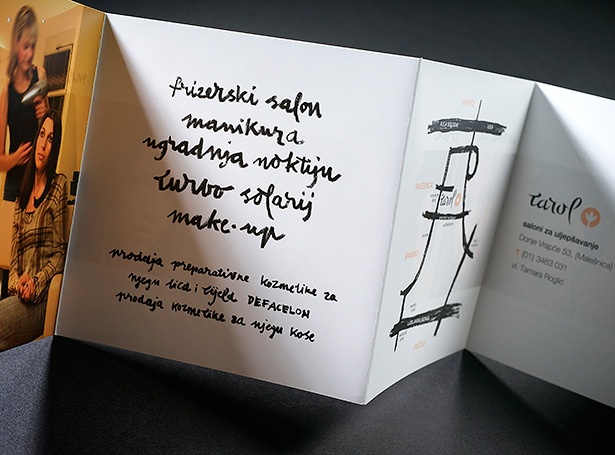 frizerski salon
manikura
ugradnja noktiju
turbo solarij
make-up
prodaja preparativne kozmetike za
njegu lica i tijela DEFACELON
prodaja kozmetike za njegu kose
tarol
tarol
saloni za uljepšavanje
Donje Vrapče 53, (Malešnica)
T (01) 3463 031
vl. Tamara Rogić